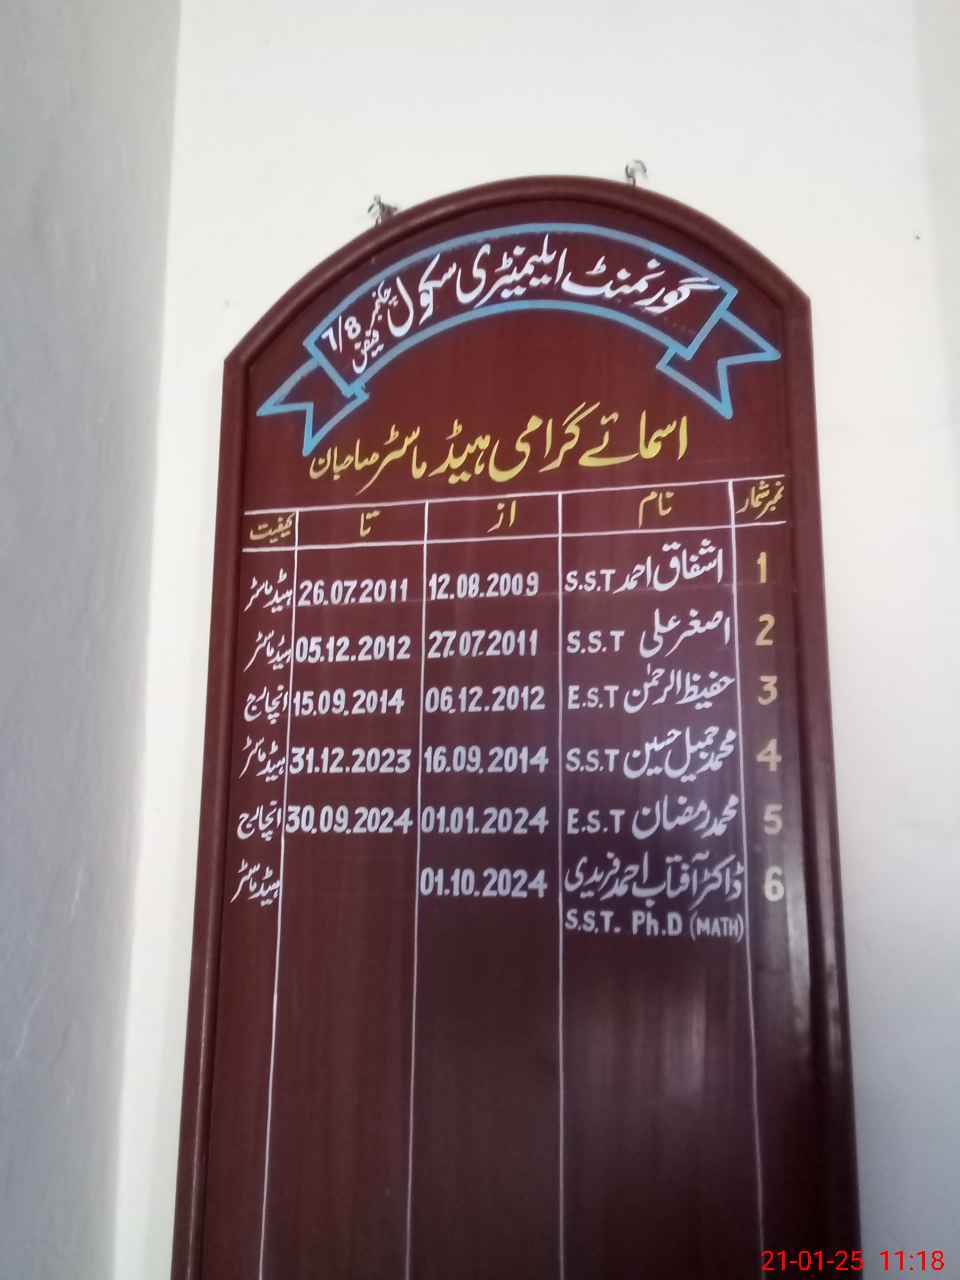 گورنمنٹ ایلیمنٹری سکول چنبر 7/8 فیض
اسمائے گرامی ہیڈ ماسٹر صاحبان
نمبر شمار نام از تا کیفیت
1 اشفاق احمد S.S.T 12.08.2009 26.07.2011 ہیڈ ماسٹر
2 اصغر علی S.S.T 27.07.2011 05.12.2012 ہیڈ ماسٹر
3 حفیظ الرحمٰن E.S.T 06.12.2012 15.09.2014 انچارج
4 محمد جمیل حسین S.S.T 16.09.2014 31.12.2023 ہیڈ ماسٹر
5 محمد رمضان E.S.T 01.01.2024 30.09.2024 انچارج
6 ڈاکٹر آفتاب احمد فریدی 01.10.2024 ہیڈ ماسٹر
S.S.T. Ph.D (MATH)
21-01-25 11:18